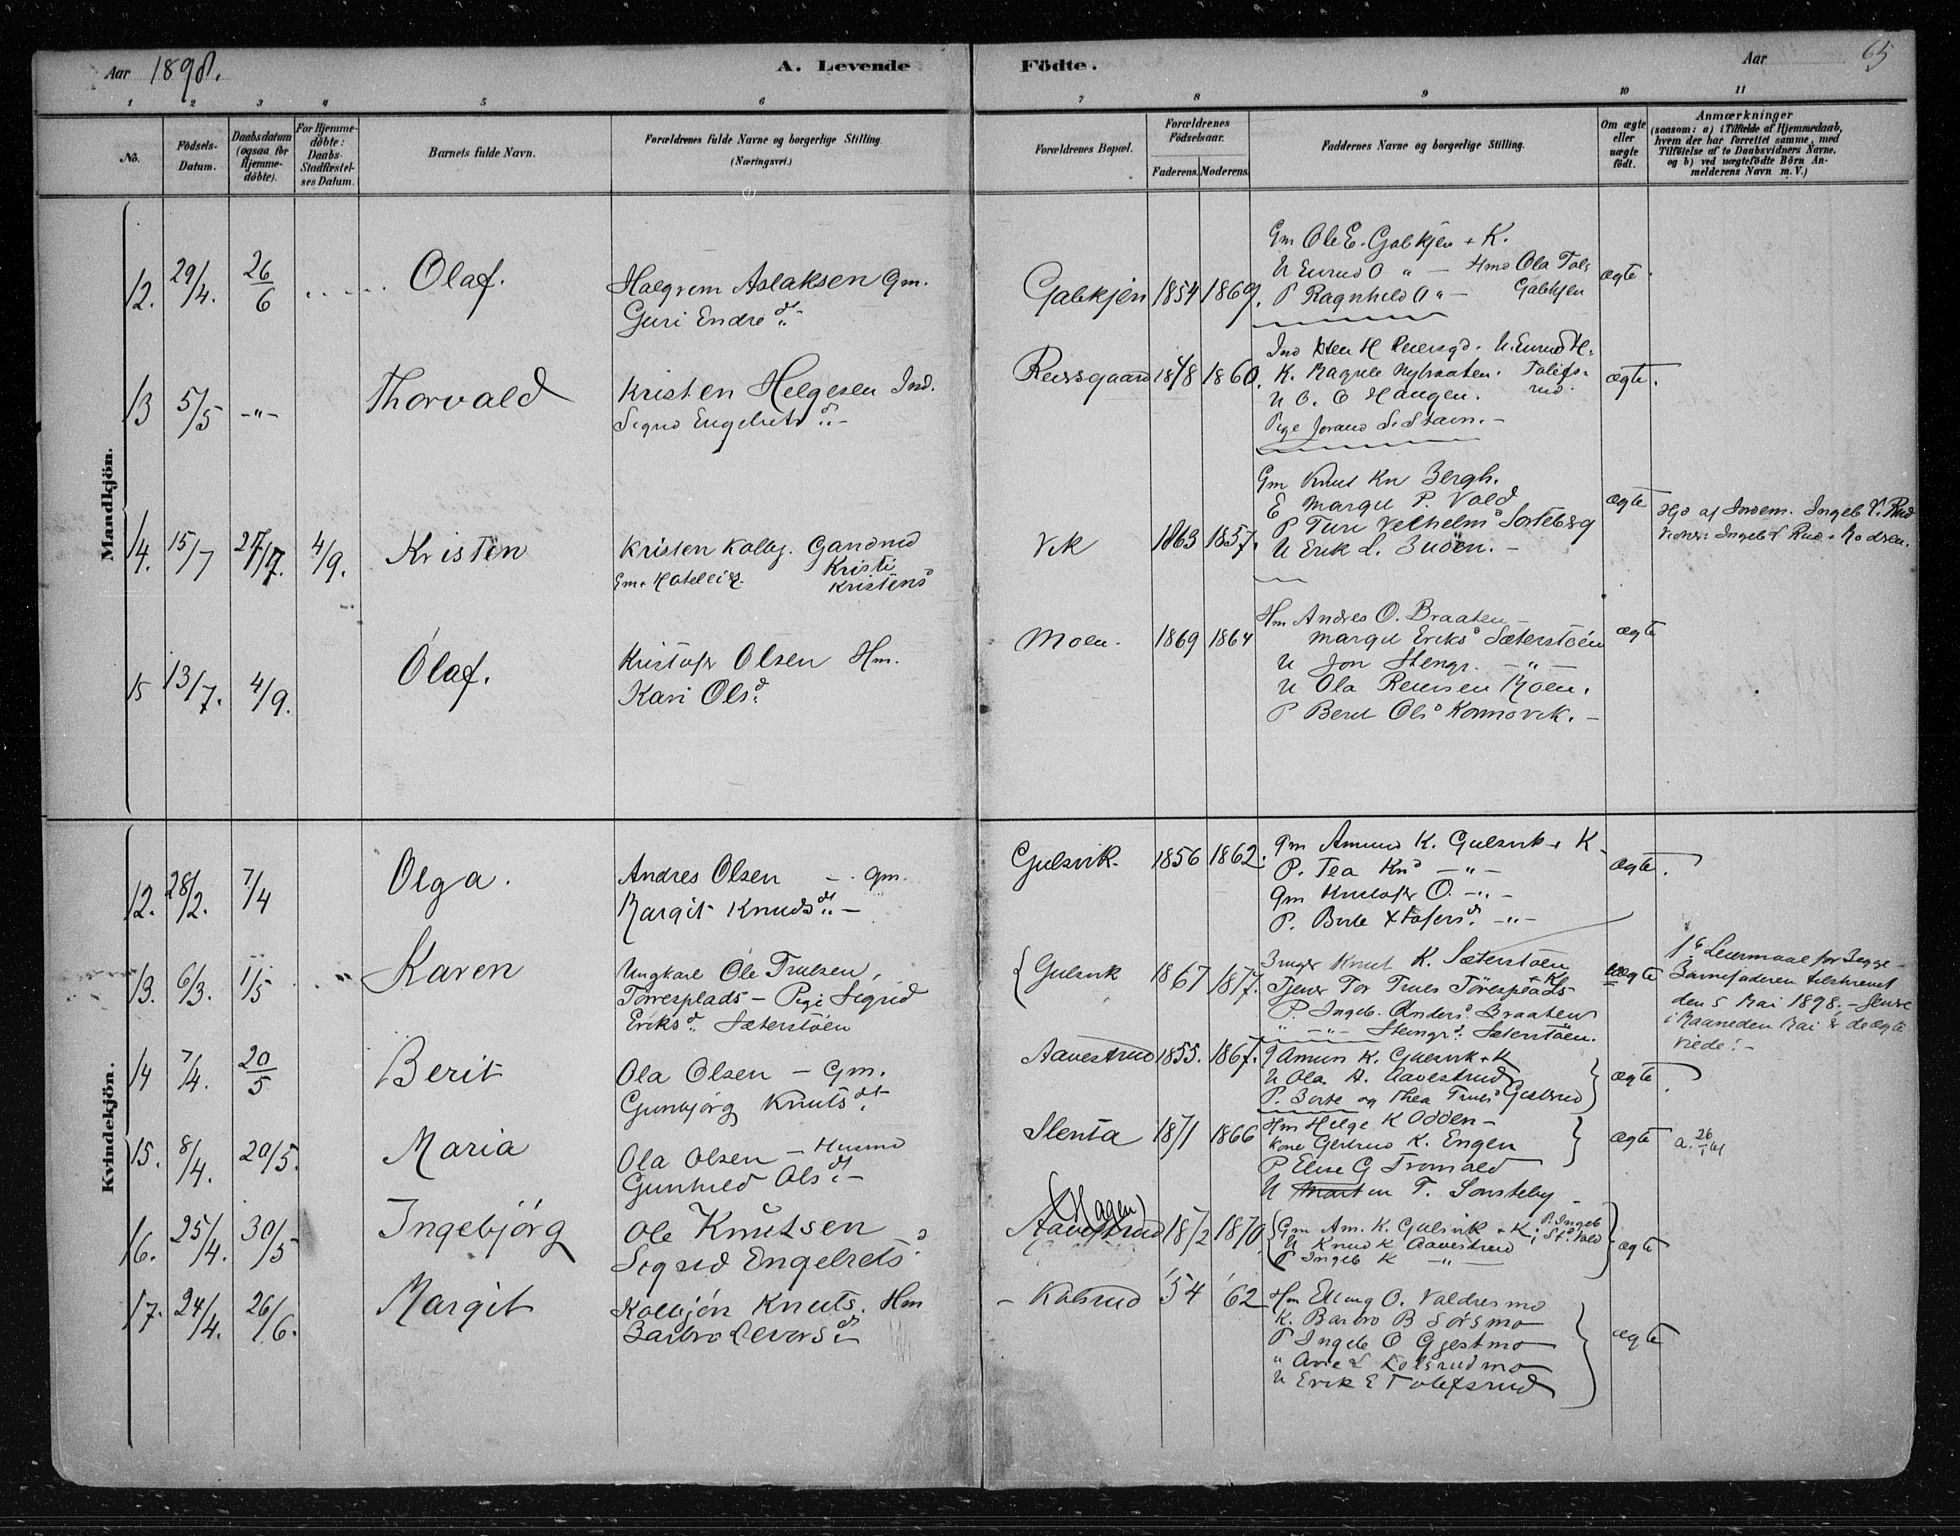 Aar 1898. A. Levende Födte. Aar 65
1 2 3 4 5 6 7 8 9 10 11
No. Födsels-Datum. Daabsdatum (ogsaa for Hjemmedöbte). For Hjemmedöbte: Daabs-Stadfæstelses Datum. Barnets fulde Navn. Forældrenes fulde Navne og borgerlige Stilling. (Næringsvei.) Forældrenes Bopæl. Forældrenes Födselsaar. Faderens. Moderens. Faddernes Navne og borgerlige Stilling. Om ægte eller uægte födt. Anmærkninger (saasom: a) i Tilfælde af Hjemmedaab, hvem der har forrettet samme, med Tilföielse af to Daabsvidners Navne, og b) ved uægtefödte Börn Anmelderens Navn m. V.)
Mandkjön.
12. 29/4. 26/6 Olaf.
Halgrim Aslaksen Gm.
Guri Endred.
Gabkjen 1854 1869.
Gm Ole E. Gabkjen + K.
U Eivind O " — Hmd Ola Tols Gabkjen
P Ragnhild O " —
ægte
13 5/5 -"- Thorvald
Kristen Helgesen Ind.
Sigrid Engebrets d. -
Reiersgaard 1848 1860.
Ind Sten H Reiersgd. U. Eivind H.
K. Ragnh Nybraaten. Tolefsrud.
U O. O Haugen.
Pige Jorand S. Stavn. -
ægte.
14. 15/7 27/7. 4/9. Kristen
Kristen Kolbj. Gandrud
Gm + Hotelleier Kristi Kristensd
Vik 1863 1857.
Gm Knut Kn Bergh.
E Margit P. Vold
P Turi Vilhelmsd Sorteberg
U Erik L. Buöen. -
ægte
Hjd af Jordem. Ingeb. V. Rud
Vidner: Ingeb L Rud + Modren.
15 13/7. 4/9. Olaf.
Kristofr Olsen Hm.
Kari Olsd.
Moen. 1869 1864
Hm Andres O. Braaten -
Margit Eriksd Sæterstöen
U Jon Stengr. — " —
U Ola Reiersen Moen.
P Berit Olsd Konnovik. -
ægte
Kvindekjön.
12. 28/2. 7/4 Olga.
Andres Olsen - . Gm.
Margit Knudsd. -
Gulsvik. 1856 1862.
Gm Amund K. Gulsvik + K -
P. Tea Knd -"-
Gm Kristofr O. -"-
P. Berte Xtofersd. -"-
ægte.
13. 6/3. 1/5 " Karen
Ungkarl Ole Trulsen,
Törresplads - Pige Sigrid
Eriksd. Sæterstöen
Gulsvik 1867 1877.
Bruger Knut K. Sæterstöen
Tjener Tor Truls Törresplads
P. Ingeb. Andersd. Braaten
" -"- Stengrd. Sæterstöen.
uægte
1ste Leiermaal for Begge -
Barnefaderen tilskrevet
den 5 Mai 1898. - Senere
i Maaneden Mai er de ægte
viede! -
14 7/4. 20/5 Berit
Ola Olsen - Gm.
Gunbjörg Knutsdt.
Aavestrud 1855. 1867.
G Amun K. Gulsvik + K
U Ola A. Aavestrud
P. Berte og Thea Trulsd Gulsvid
ægte.
15. 8/4. 20/5. Maria
Ola Olsen - Husmd
Gunhild Olsdt -
Slenta 1871 1866
Hm Helge K Odden -
Kone Gertrud K. Engen
P Elise G Tromald
U Marten T. Sønsteby -
ægte
a. 26/1 01
16. 25/4. 30/5 Ingebjörg
Ole Knutsen
Sigrid Engelretsd
(Hagen)
Aavestrud 1872 1870
Gm Am. K. Gulsvik + K; P. Ingeb
U Knud K Aavestrud
P Ingeb K -"-
ægte
17. 24/4. 26/6. Margit
Kolbjön Knuts. Hm
Barbro Reiersd -
- Kolsrud '54 '62
Hm Elling O. Valdresmo
K. Barbro B Sörsmo
P Ingeb O Gjestmo
" Ane L Kolsrudmo
U Erik E Tolefsrud
ægte